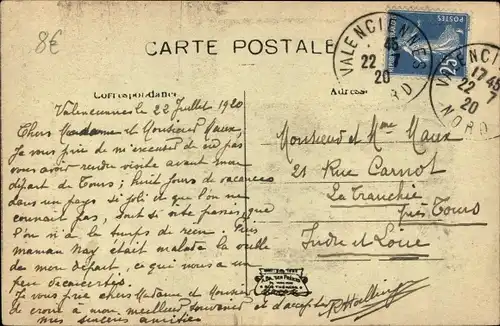 8€
CARTE POSTALE
VALENCIENNES
45
22 - 7
20
NORD
POSTES
25
VALENCIENNES
17 45
22 7
20
NORD
Correspondance
Adresse
Valenciennes le 22 Juillet 1920
Chers Madame et Monsieur Maux,
Je vous prie de m'excuser de ne pas
vous avoir rendu visite avant mon
départ de Tours; huit jours de vacances
dans un pays si joli et que l'on ne
connait pas, sont si vite passés que
l'on n'a le temps de rien. Puis
maman Nay était malade la veille
de mon départ, ce qui nous a un
peu
Je vous prie chers Madame et Monsieur
de croire à mon meilleur souvenir et d'accepter
mes sincères amitiés
Monsieur et Mme Maux
21 Rue Carnot
La Tranchée
près Tours
Indre et Loire